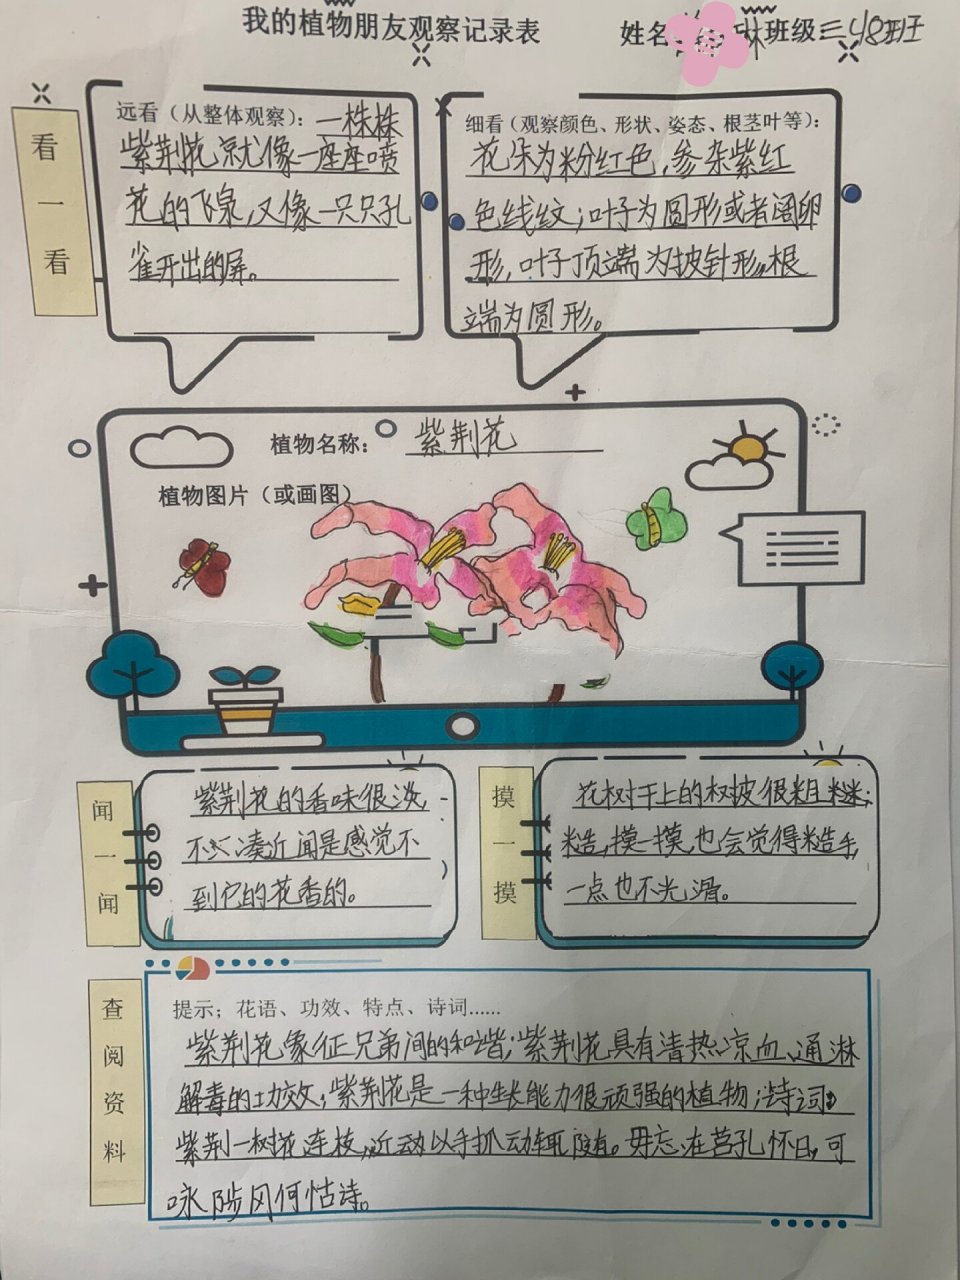 我的植物朋友观察记录表
姓名 琳 班级 三48班
看一看
远看（从整体观察）：一株株
紫荆花就像一座座喷
花的飞泉，又像一只只孔
雀开出的屏。
细看（观察颜色、形状、姿态、根茎叶等）：
花朵为粉红色，参杂紫红
色线纹；叶子为圆形或者阔卵
形，叶子顶端为披针形，根
端为圆形。
植物名称：紫荆花
植物图片（或画图）
闻一闻
紫荆花的香味很淡，
不凑近闻是感觉不
到它的花香的。
摸一摸
花树干上的树皮很粗糙；
糙，摸一摸，也会觉得糙手，
一点也不光滑。
查阅资料
提示；花语、功效、特点、诗词……
紫荆花象征兄弟间的和谐；紫荆花具有清热、凉血、通淋
解毒的功效；紫荆花是一种生长能力很顽强的植物；诗词：
紫荆一树花连枝，近动以手抓动辄 。毋忘在莒孔怀日，可
咏陟冈何怙诗。